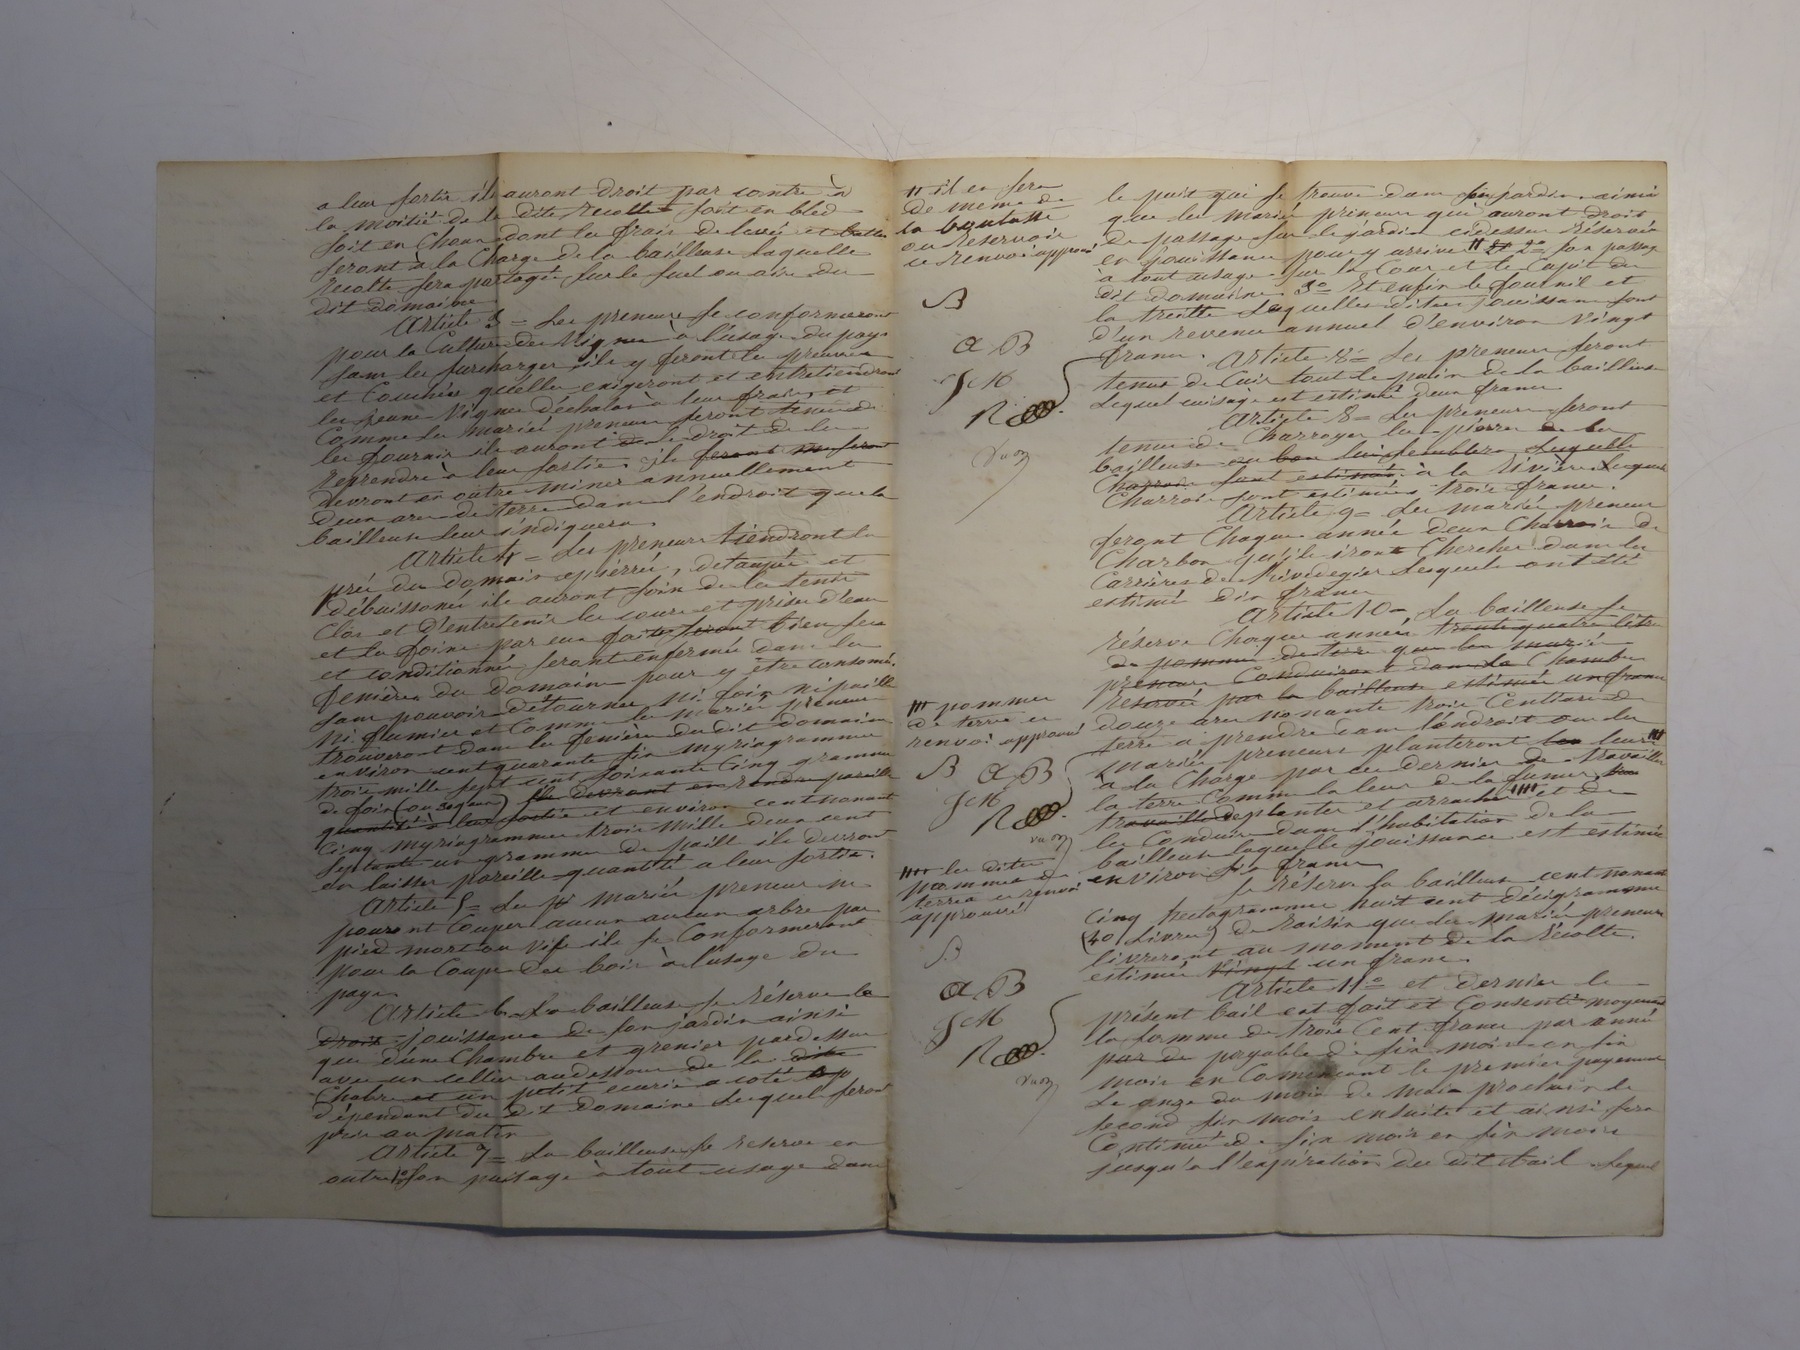 a leur sortie ils auront droit par contre à
la moitié de la dite recolte soit en bled
soit en Chaux dont les frais de levée et battre
seront à la Charge de la bailleuse laquelle
recolte sera partagée sur le suel ou aire du
dit domaine
Article 3 = Les preneurs se conformeront
pour la Culture des Vignes à l'usage du pays
sans les surcharger ils y feront les preuves
et Couchées qu'elles exigeront et entretiendront
les jeunes Vignes d'échalas à leur frais, et
Comme les mariés preneurs seront tenus de
les fournir ils auront de le droit de les
reprendre à leur sortie. ils seront ne seront
devront en outre miner annuellement
deux ares de terre dans l'endroit que la
bailleuse leur indiquera.
Article 4 = Les preneurs tiendront les
prés du domaine épierrés, détaupés et
débuissonés ils auront soin de les tenir
Clos et d'entretenir les cours et prises d'eau
et les foins par eux faits seront bien secs
et conditionnés seront enfermés dans la
fenière du domaine pour y être consomés,
sans pouvoir détourner ni foin ni paille
ni fumier et Comme les mariés preneurs
trouveront dans la fenière du dit domaine
environ cent quarante six myriagrammes
trois mille sept cent soixante Cinq grammes
de foin (ou 30 quin) ils devront en rendre pareille
quantité à leur sortie et environ cent nonante
Cinq myriagrammes trois mille deux cent
septante un grammes de paille ils devront
en laisser pareille quantité a leur sortie.
Article 5 = Les mariés preneurs ne
pouront Couper aucun aucun arbre par
pied mort ou vif ils se Conformeront
pour la Coupe des bois à l'usage du
pays
Article 6 = La bailleuse se réserve la
droit jouissance de son jardin ainsi
que d'une Chambre et grenier pardessus
avec un cellier audessous de la dite
Chabre et un petit ecurie a coté
dépendant du dit domaine Lequel seront
prés au matin
Article 7 = La bailleuse se reserve en
outre 1° son puisage à tout usage dans
# il en sera
de meme de
la boutasse
ou reservoir
ce renvoi approuvé
B
a B
J M
R
Vuon
le puit qui se trouve dans son jardin ainsi
que les mariés preneurs qui auront droit
de passage sur le jardin cidessus réservé
en jouissance pour y arriver # et 2° son passage
à tout usage sur la Cour et le Cupit du
dit domaine 3° Et enfin le fournil et
la treille Lesquelles dites jouissances sont
d'un revenu annuel d'environ Vingt
francs.
Article 8 = Les preneurs seront
tenus de Cuir tout le pain de la bailleuse
Lequel cuisage est estimé deux francs
Article 8 = Les preneurs seront
tenus de Charroyer les pierres de la
bailleuse ou bon lui semblera Lesquels
Charrois sont estimés à la Rivière Lesquels
Charrois sont estimés trois francs.
Article 9 = Les mariés preneurs
feront Chaque année deux Charrois de
Charbon qu'ils iront Chercher dans les
Carrières de Rivedegier Lesquels ont été
estimé dix francs
Article 10 = La bailleuse se
réserve Chaque année trente quatre litre
de pomme de terre que les mariés
preneurs Conduiront dans la Chambre
reservée par la bailleuse estimée un franc
douze ares nonante trois Centiares de
terre à prendre dans l'endroit ou les
mariés preneurs planteront les leurs ###
à la Charge par ce dernier de travailler
la terre Comme la leur de la fumer
travaille desplanter et arracher #### et de
les Conduire dans l'habitation de la
bailleuse laquelle jouissance est estimée
environ six francs
### pommes
de terre ce
renvoi approuvé
B a B
J M
R
vuon
#### les dites
pommes de
terres ce renvoi
approuvé
B
a B
J M
R
Vuon
Se réserve la bailleuse cent nonante
Cinq hectogrammes huit cent décigrammes
(40 Livres) de raisin que les mariés preneurs
livreront au moment de la Récolte.
estimée Vingt un franc.
Article 11 = et dernier le
présent bail est fait et Consenti moyenant
la somme de trois Cent francs par année
par de payable de six mois en six
mois en Comencant le premier payement
Le onze du mois de mai prochain le
second six mois ensuite et ainsi sera
Continué de six mois en six mois
jusqu'à l'expiration du dit bail Lequel